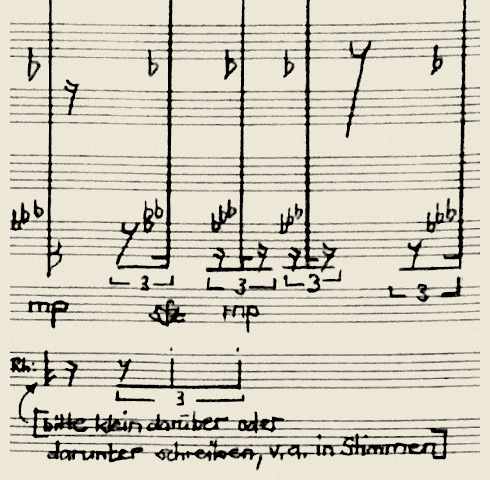 3 3 3 3
mp sfz mp
Rh:
3
[bitte klein darüber oder
darunter schreiben, v.a. in Stimmen]